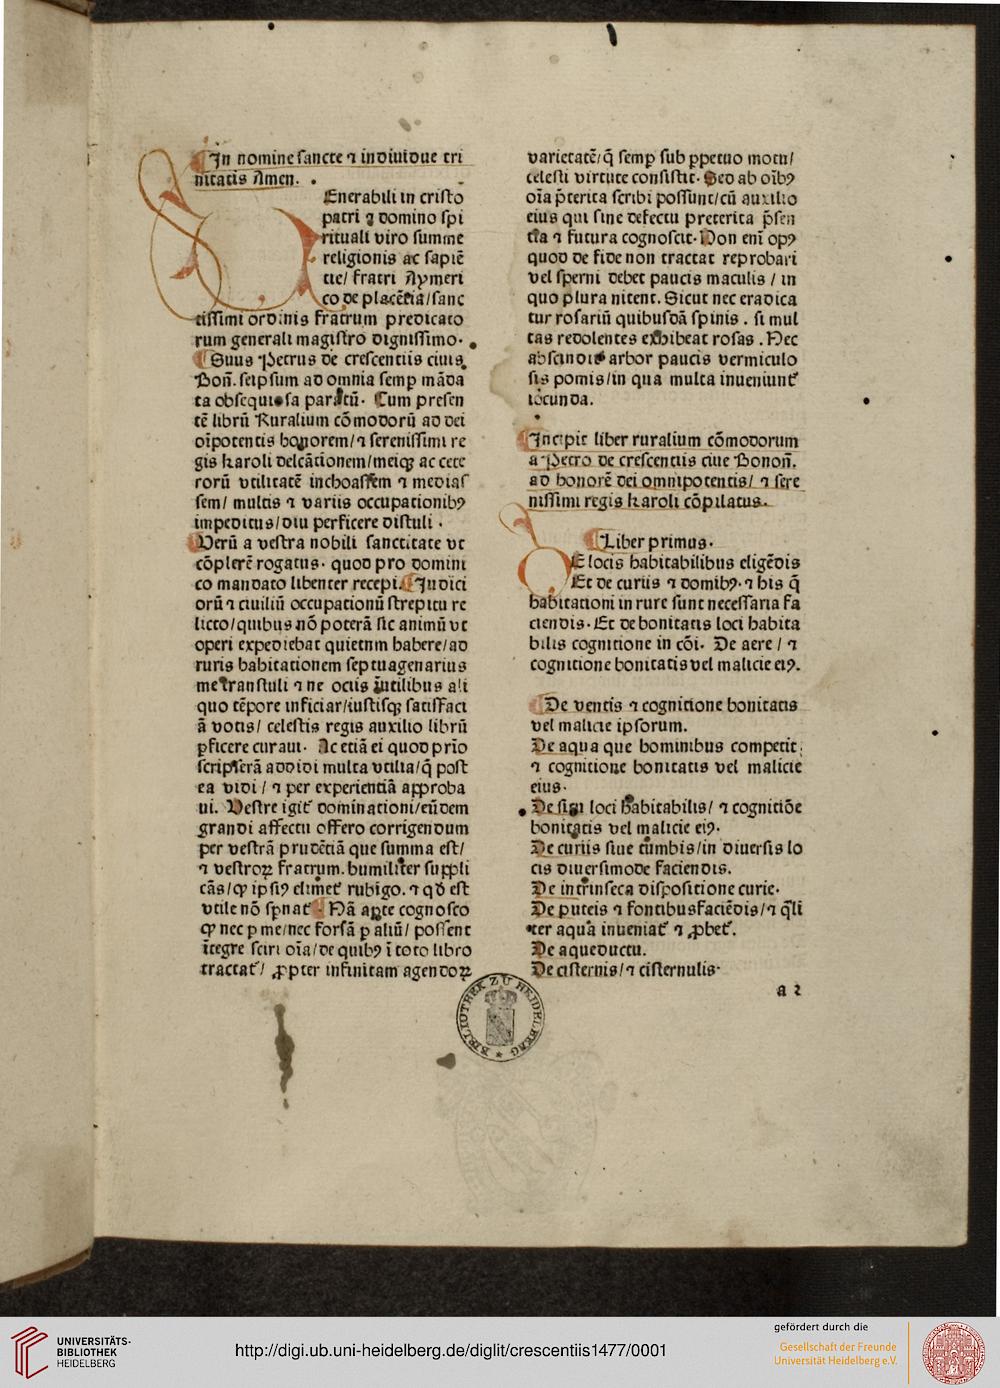 In nomine sancte ⁊ indiuidue tri
nitatis Amen.
Enerabili in cristo
patri ⁊ domino spi
rituali viro summe
religionis ac sapiē
tie/ fratri Aymeri
co de placētia/sanc
tissimi ordinis fratrum predicato
rum generali magistro dignissimo.
Suus Petrus de crescentiis ciuis
Bon̄. seipsum ad omnia semp̱ māda
ta obsequiosa paratū. Cum presen
tē librū Ruralium cōmodorū ad dei
oīpotentis honorem/⁊ serenissimi re
gis karoli delcātionem/meiqꝫ ac cete
rorū vtilitatē inchoassem ⁊ medias
sem/ multis ⁊ variis occupationibꝰ
impeditus/diu perficere distuli .
Verū a vestra nobili sanctitate vt
cōplerē rogatus. quod pro domini
co mandato libenter recepi. Iudici
orū ⁊ ciuiliū occupationū strepitu re
licto/quibus nō poterā sic animū vt
operi expediebat quietum habere/ad
ruris habitationem septuagenarius
me transtuli ⁊ ne ociis īutilibus ali
quo tēpore inficiar/iustisqꝫ satisfaci
ā votis/ celestis regis auxilio librū
ꝑficere curaui. Ac etiā ei quod prīo
scripserā addidi multa vtilia/q̄ post
ea vidi / ⁊ per experientiā approba
ui. Vestre igit̄ dominationi/eūdem
grandi affectu offero corrigendum
per vestrā prudētiā que summa est/
⁊ vestroꝝ fratrum. humiliter suppli
cās/ꝙ ipsiꝰ elimet̄ rubigo. ⁊ qđ est
vtile nō spnat̄ Nā aꝑte cognosco
ꝙ nec ꝑ me/nec forsā ꝑ aliū/ possent
ītegre sciri oīa/de quibꝰ ī toto libro
tractat̄/ ꝓpter infinitam agendoꝝ
varietatē/q̄ semꝑ sub ꝑpetuo motu/
celesti virtute consistit. Sed ab oībꝰ
oīa p̄terita scribi possunt/cū auxilio
eius qui sine defectu preterita p̄sen
tia ⁊ futura cognoscit. Non enī opꝰ
quod de fide non tractat reprobari
vel sperni debet paucis maculis / in
quo plura nitent. Sicut nec eradica
tur rosariū quibusdā spinis . si mul
tas redolentes exhibeat rosas . Nec
abscindit̄ arbor paucis vermiculo
sis pomis/in qua multa inueniunt̄
iocunda.
Incipit liber ruralium cōmodorum
a Petro de crescentiis ciue Bonon̄.
ad honorē dei omnipotentis/ ⁊ sere
nissimi regis karoli cōpilatus.
Liber primus.
DE locis habitabilibus eligēdis
Et de curiis ⁊ domibꝰ. ⁊ his q̄
habitationi in rure sunt necessaria fa
ciendis. Et de bonitatis loci habita
bilis cognitione in cōi. De aere / ⁊
cognitione bonitatis vel malicie eiꝰ.
De ventis ⁊ cognitione bonitatis
vel malicie ipsorum.
De aqua que hominibus competit
⁊ cognitione bonitatis vel malicie
eius.
De situ loci habitabilis/ ⁊ cognitiōe
bonitatis vel malicie eiꝰ.
De curiis siue tumbis/in diuersis lo
cis diuersimode faciendis.
De intrinseca dispositione curie.
De puteis ⁊ fontibus faciēdis/⁊ q̄li
ter aqua inueniat̄ ⁊ ꝓbet̄.
De aqueductu.
De cisternis/⁊ cisternulis.
a 2
BIBLIOTHEK ZU HEIDELBERG
UNIVERSITÄTS-
BIBLIOTHEK
HEIDELBERG
http://digi.ub.uni-heidelberg.de/diglit/crescentiis1477/0001
gefördert durch die
Gesellschaft der Freunde
Universität Heidelberg e.V.